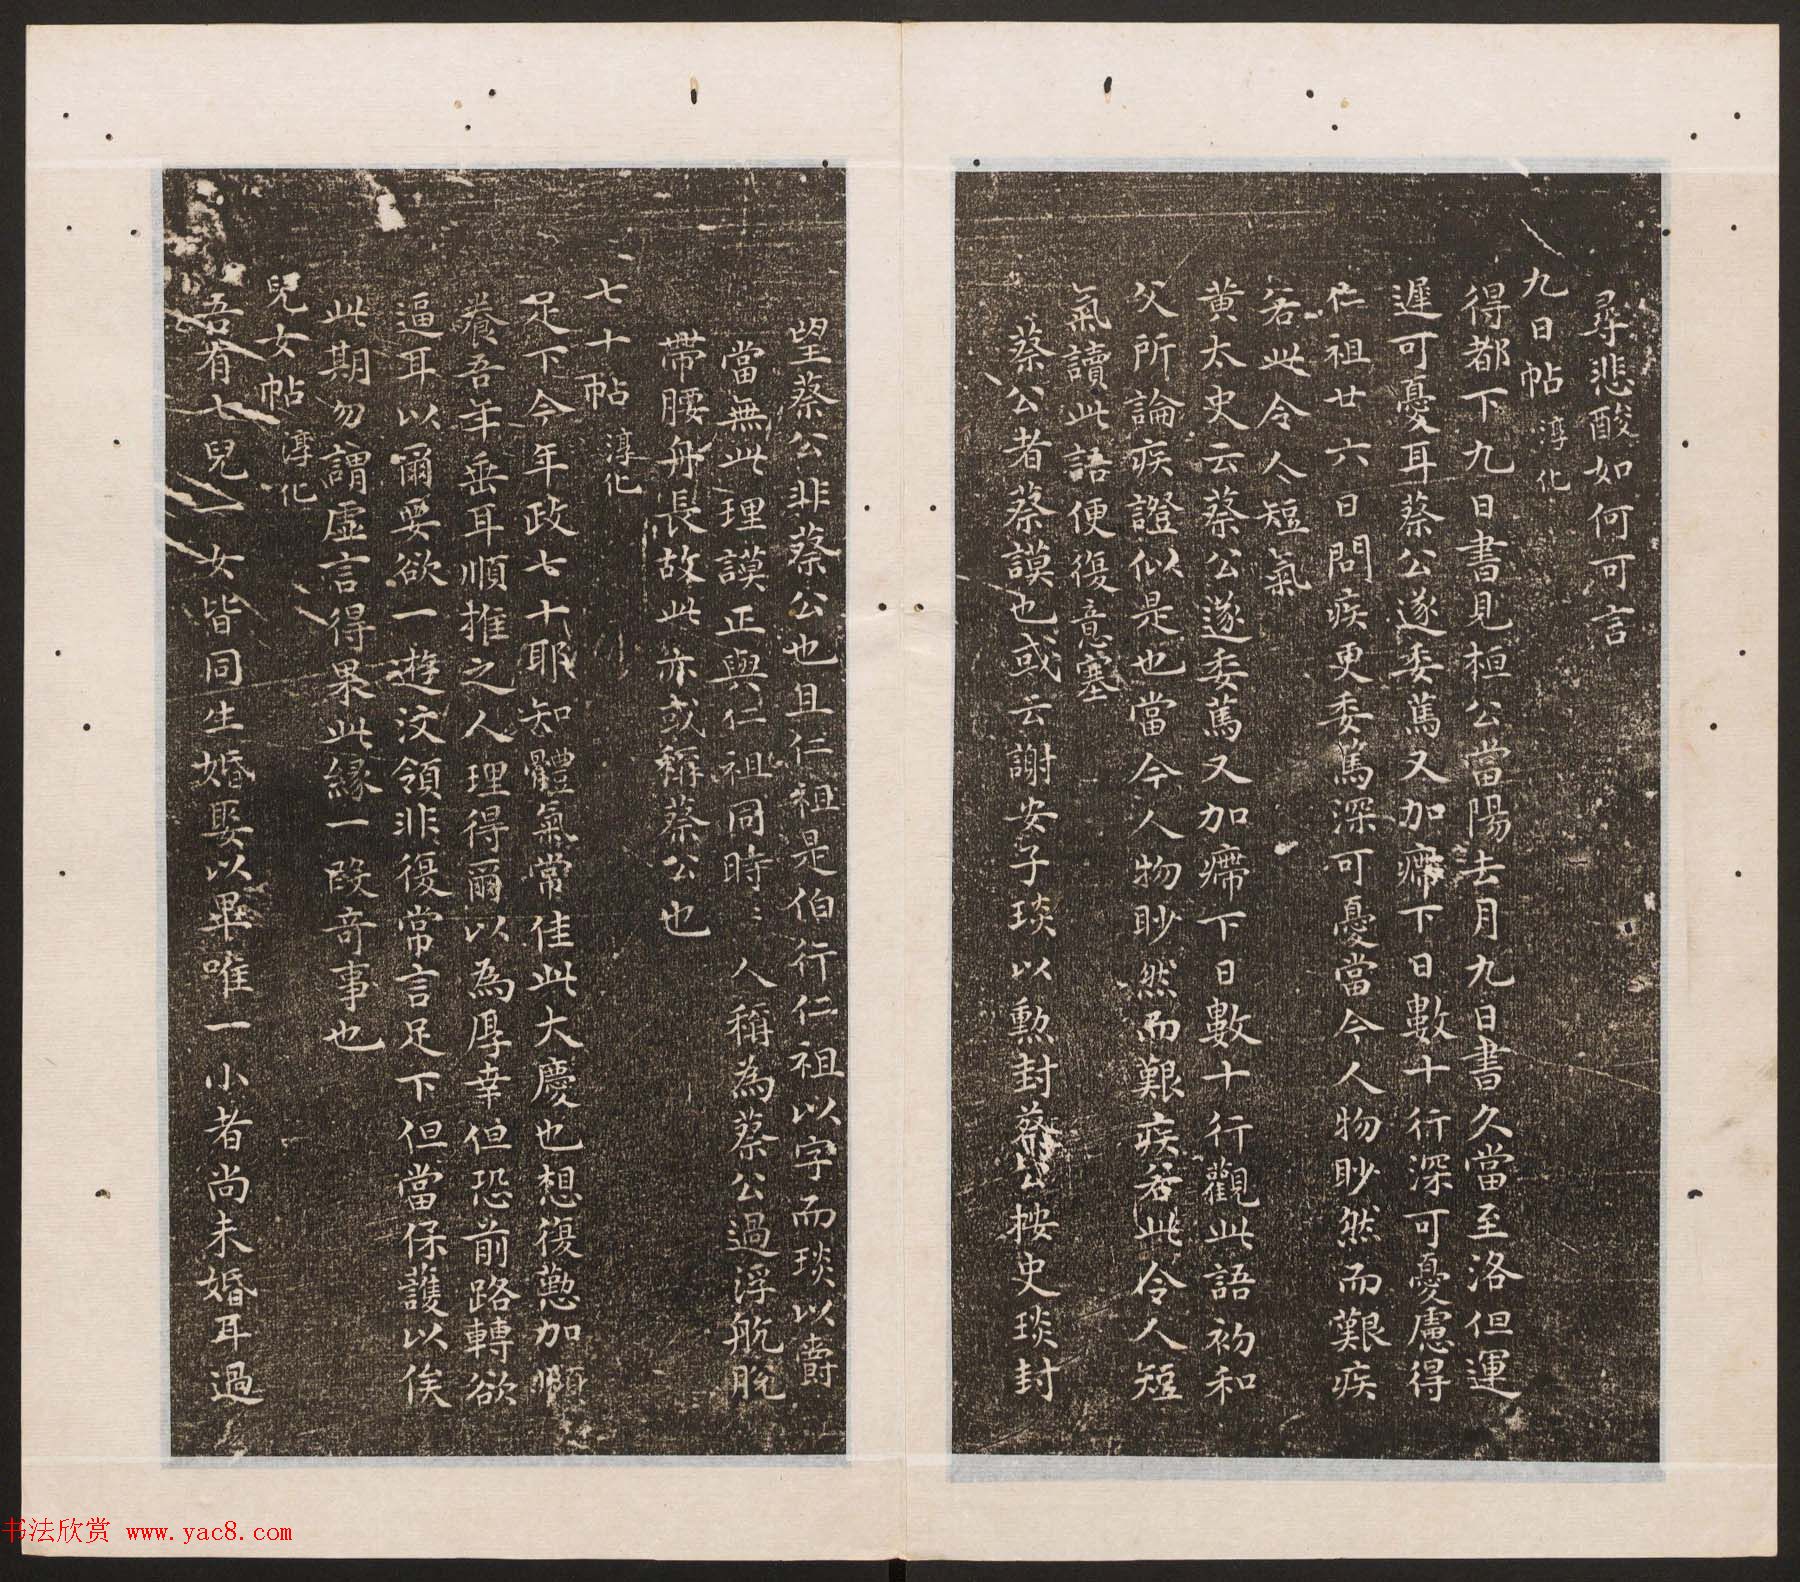 尋悲酸如何可言
九日帖 淳化
得都下九日書見桓公當陽去月九日書久當至洛但運
遲可憂耳蔡公遂委篤又加㿃下日數十行深可憂慮得
仁祖廿六日問疾更委篤深可憂當今人物眇然而艱疾
若此令人短氣
黃太史云蔡公遂委篤又加㿃下日數十行觀此語初和
父所論疾證似是也當今人物眇然而艱疾若此令人短
氣讀此語便復意塞
蔡公者蔡謨也或云謝安子琰以勲封蔡公按史琰封
望蔡公非蔡公也且仁祖是伯行仁祖以字而琰以爵
當無此理謨正與仁祖同時〻人稱為蔡公過浮航脫
帶腰舟長故此亦或稱蔡公也
七十帖 淳化
足下今年政七十耶知體氣常佳此大慶也想復懃加順
養吾年垂耳順推之人理得爾以為厚幸但恐前路轉欲
逼耳以爾要欲一遊汶領非復常言足下但當保護以俟
此期勿謂虛言得果此緣一段奇事也
兒女帖 淳化
吾有七兒一女皆同生婚娶以畢唯一小者尚未婚耳過
书法欣赏 www.yac8.com